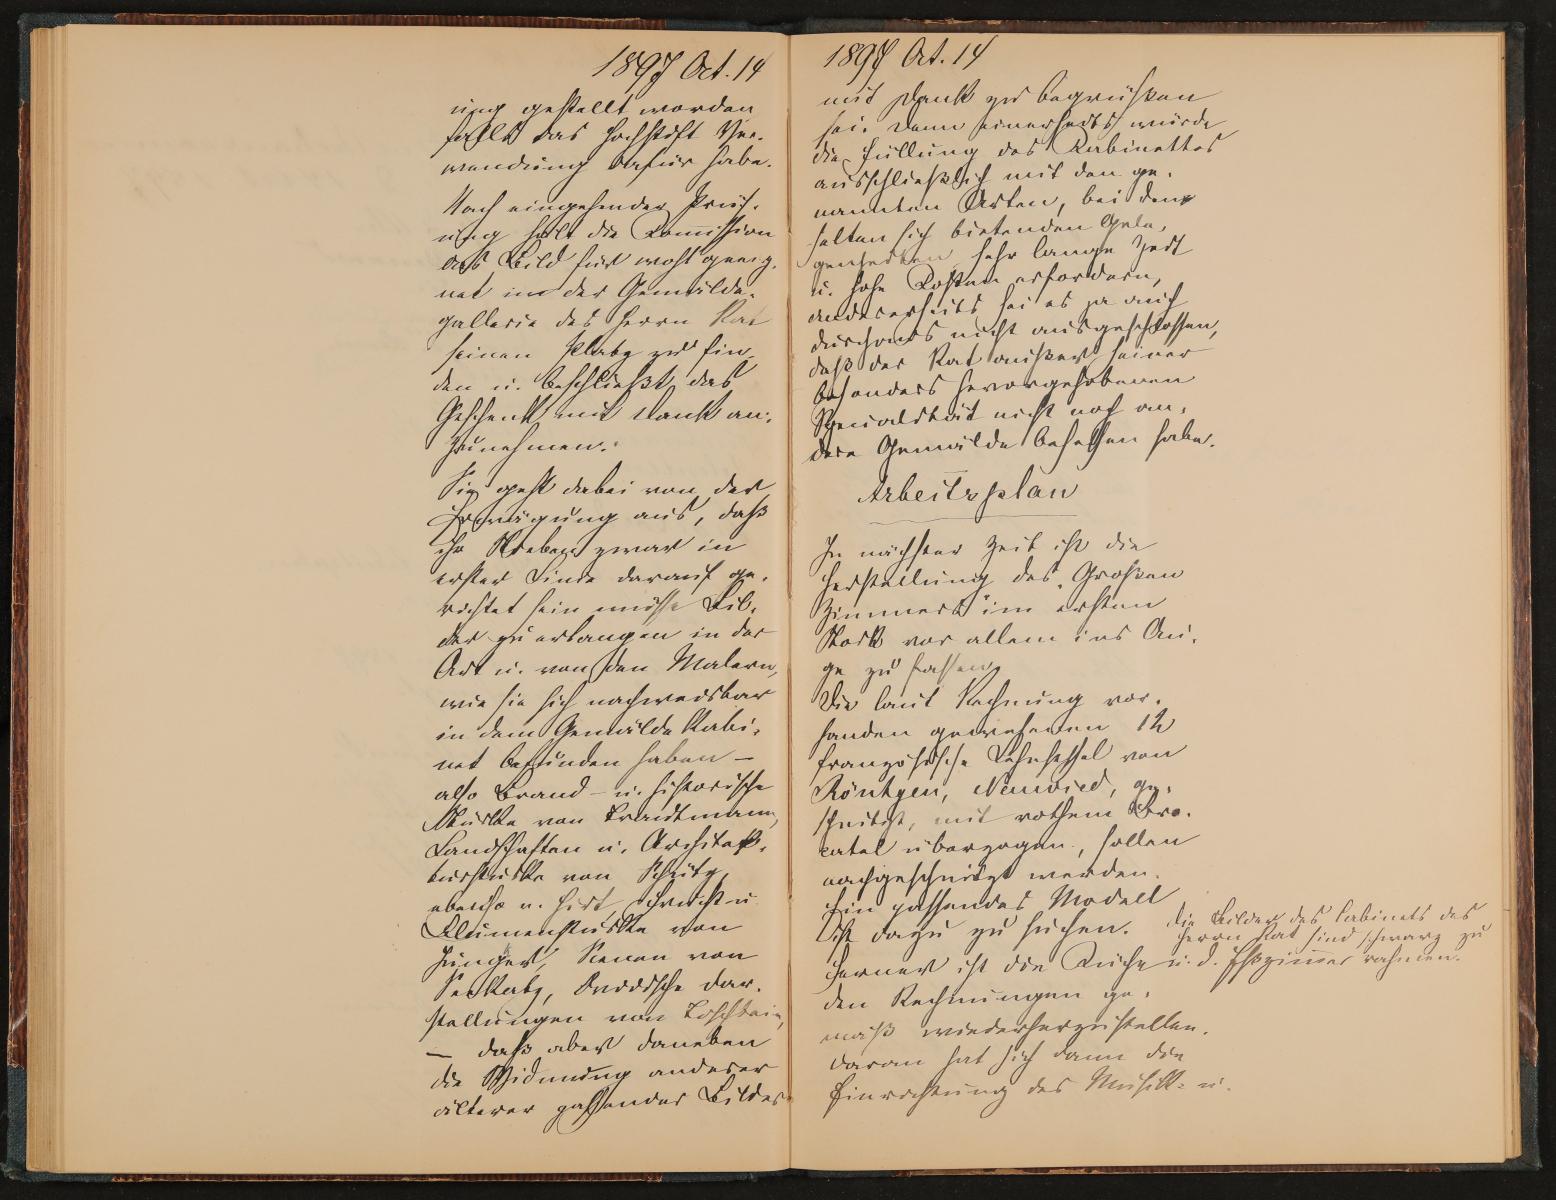 1897 Oct. 14
ung gestellt worden
falls das Hochstift Ver-
wendung dafür habe.
Nach eingehender Prüf-
ung hält die Commission
das Bild für wohl geeig-
net in der Gemälde-
gallerie des Herrn Rat
seinen Platz zu fin-
den u. beschließt das
Geschenk mit Dank an-
zunehmen.
Sie geht dabei von der
Erwägung aus, daß
ihr Streben zwar in
erster Linie darauf ge-
richtet sein müsse Bil-
der zu erlangen in der
Art u. von den Malern,
wie sie sich nachweisbar
in dem Gemälde Kabi-
net befunden haben –
also Brand- u. historische
Stücke von Trautmann,
Landschaften u. Architek-
turstücke von Schütz,
ebenso u. Hirt, Frucht- u.
Blumenstücke von
Junger, Scenen von
Seekatz, Darstel-
stellungen von
– daß aber daneben
die Widmung anderer
älterer passender Bilder
1897 Oct. 14
mit Dank zu begrüßen
sei. Denn einerseits würde
die Füllung des Kabinettes
ausschließlich mit den ge-
nannten Arten, bei den
selten sich bietenden Gele-
genheiten sehr lange Zeit
u. hohe Kosten erfordern,
andererseits sei es ja auch
durchaus nicht ausgeschlossen,
daß der Rat außer seiner
besonders hervorgehobenen
Specialität nicht noch an-
dere Gemälde besessen habe.
Arbeitsplan
In nächster Zeit ist die
Herstellung des „Großen
Zimmers" im ersten
Stock vor allem ins Au-
ge zu fassen.
Die laut Rechnung vor-
handen gewesenen 12
französische Lehnsessel von
Röntgen, Neuwied, ge-
schnitzt, mit rothem Bro-
catel überzogen, sollen
nachgeschnitzt werden.
Ein passendes Modell
ist dazu zu suchen.
Die Bilder des Cabinets des
Herrn Rat sind schwarz zu
rahmen.
Ferner ist die Küche u. d. Eßzimmer
den Rechnungen ge-
mäß wiederherzustellen.
daran hat sich dann die
Einrichtung des Musik- u.